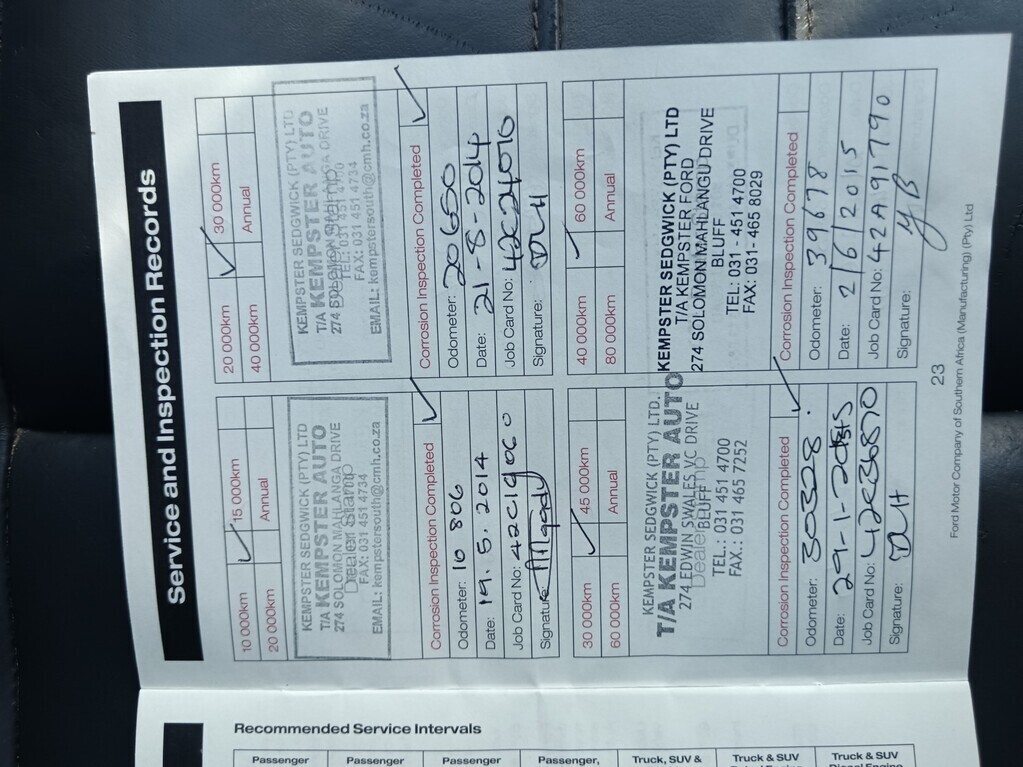 Service and Inspection Records
10 000km 15 000km
20 000km Annual
KEMPSTER SEDGWICK (PTY) LTD
T/A KEMPSTER AUTO
274 SOLOMON MAHLANGA DRIVE
Dealer Stamp
FAX: 031 451 4734
EMAIL: kempstersouth@cmh.co.za
Corrosion Inspection Completed
Odometer: 10 806
Date: 19.5.2014
Job Card No: 42C19060
Signature:
20 000km 30 000km
40 000km Annual
KEMPSTER SEDGWICK (PTY) LTD
T/A KEMPSTER AUTO
274 SOLOMON MAHLANGA DRIVE
Dealer Stamp
TEL: 031 451 4700
FAX: 031 451 4734
EMAIL: kempstersouth@cmh.co.za
Corrosion Inspection Completed
Odometer: 20650
Date: 21-8-2014
Job Card No:
Signature:
30 000km 45 000km
60 000km Annual
KEMPSTER SEDGWICK (PTY) LTD.
T/A KEMPSTER AUTO
274 EDWIN SWALES VC DRIVE
Dealer Stamp
BLUFF
TEL.: 031 451 4700
FAX.: 031 465 7252
Corrosion Inspection Completed
Odometer: 30328.
Date: 29-1-2015
Job Card No:
Signature:
40 000km 60 000km
80 000km Annual
KEMPSTER SEDGWICK (PTY) LTD
T/A KEMPSTER FORD
274 SOLOMON MAHLANGU DRIVE
BLUFF
TEL: 031 - 451 4700
FAX: 031 - 465 8029
Corrosion Inspection Completed
Odometer: 39678
Date: 2/6/2015
Job Card No: 42A91790
Signature: YB
23
Ford Motor Company of Southern Africa (Manufacturing) (Pty) Ltd
Recommended Service Intervals
Passenger Passenger Passenger Passenger, Truck, SUV & Truck & SUV Truck & SUV